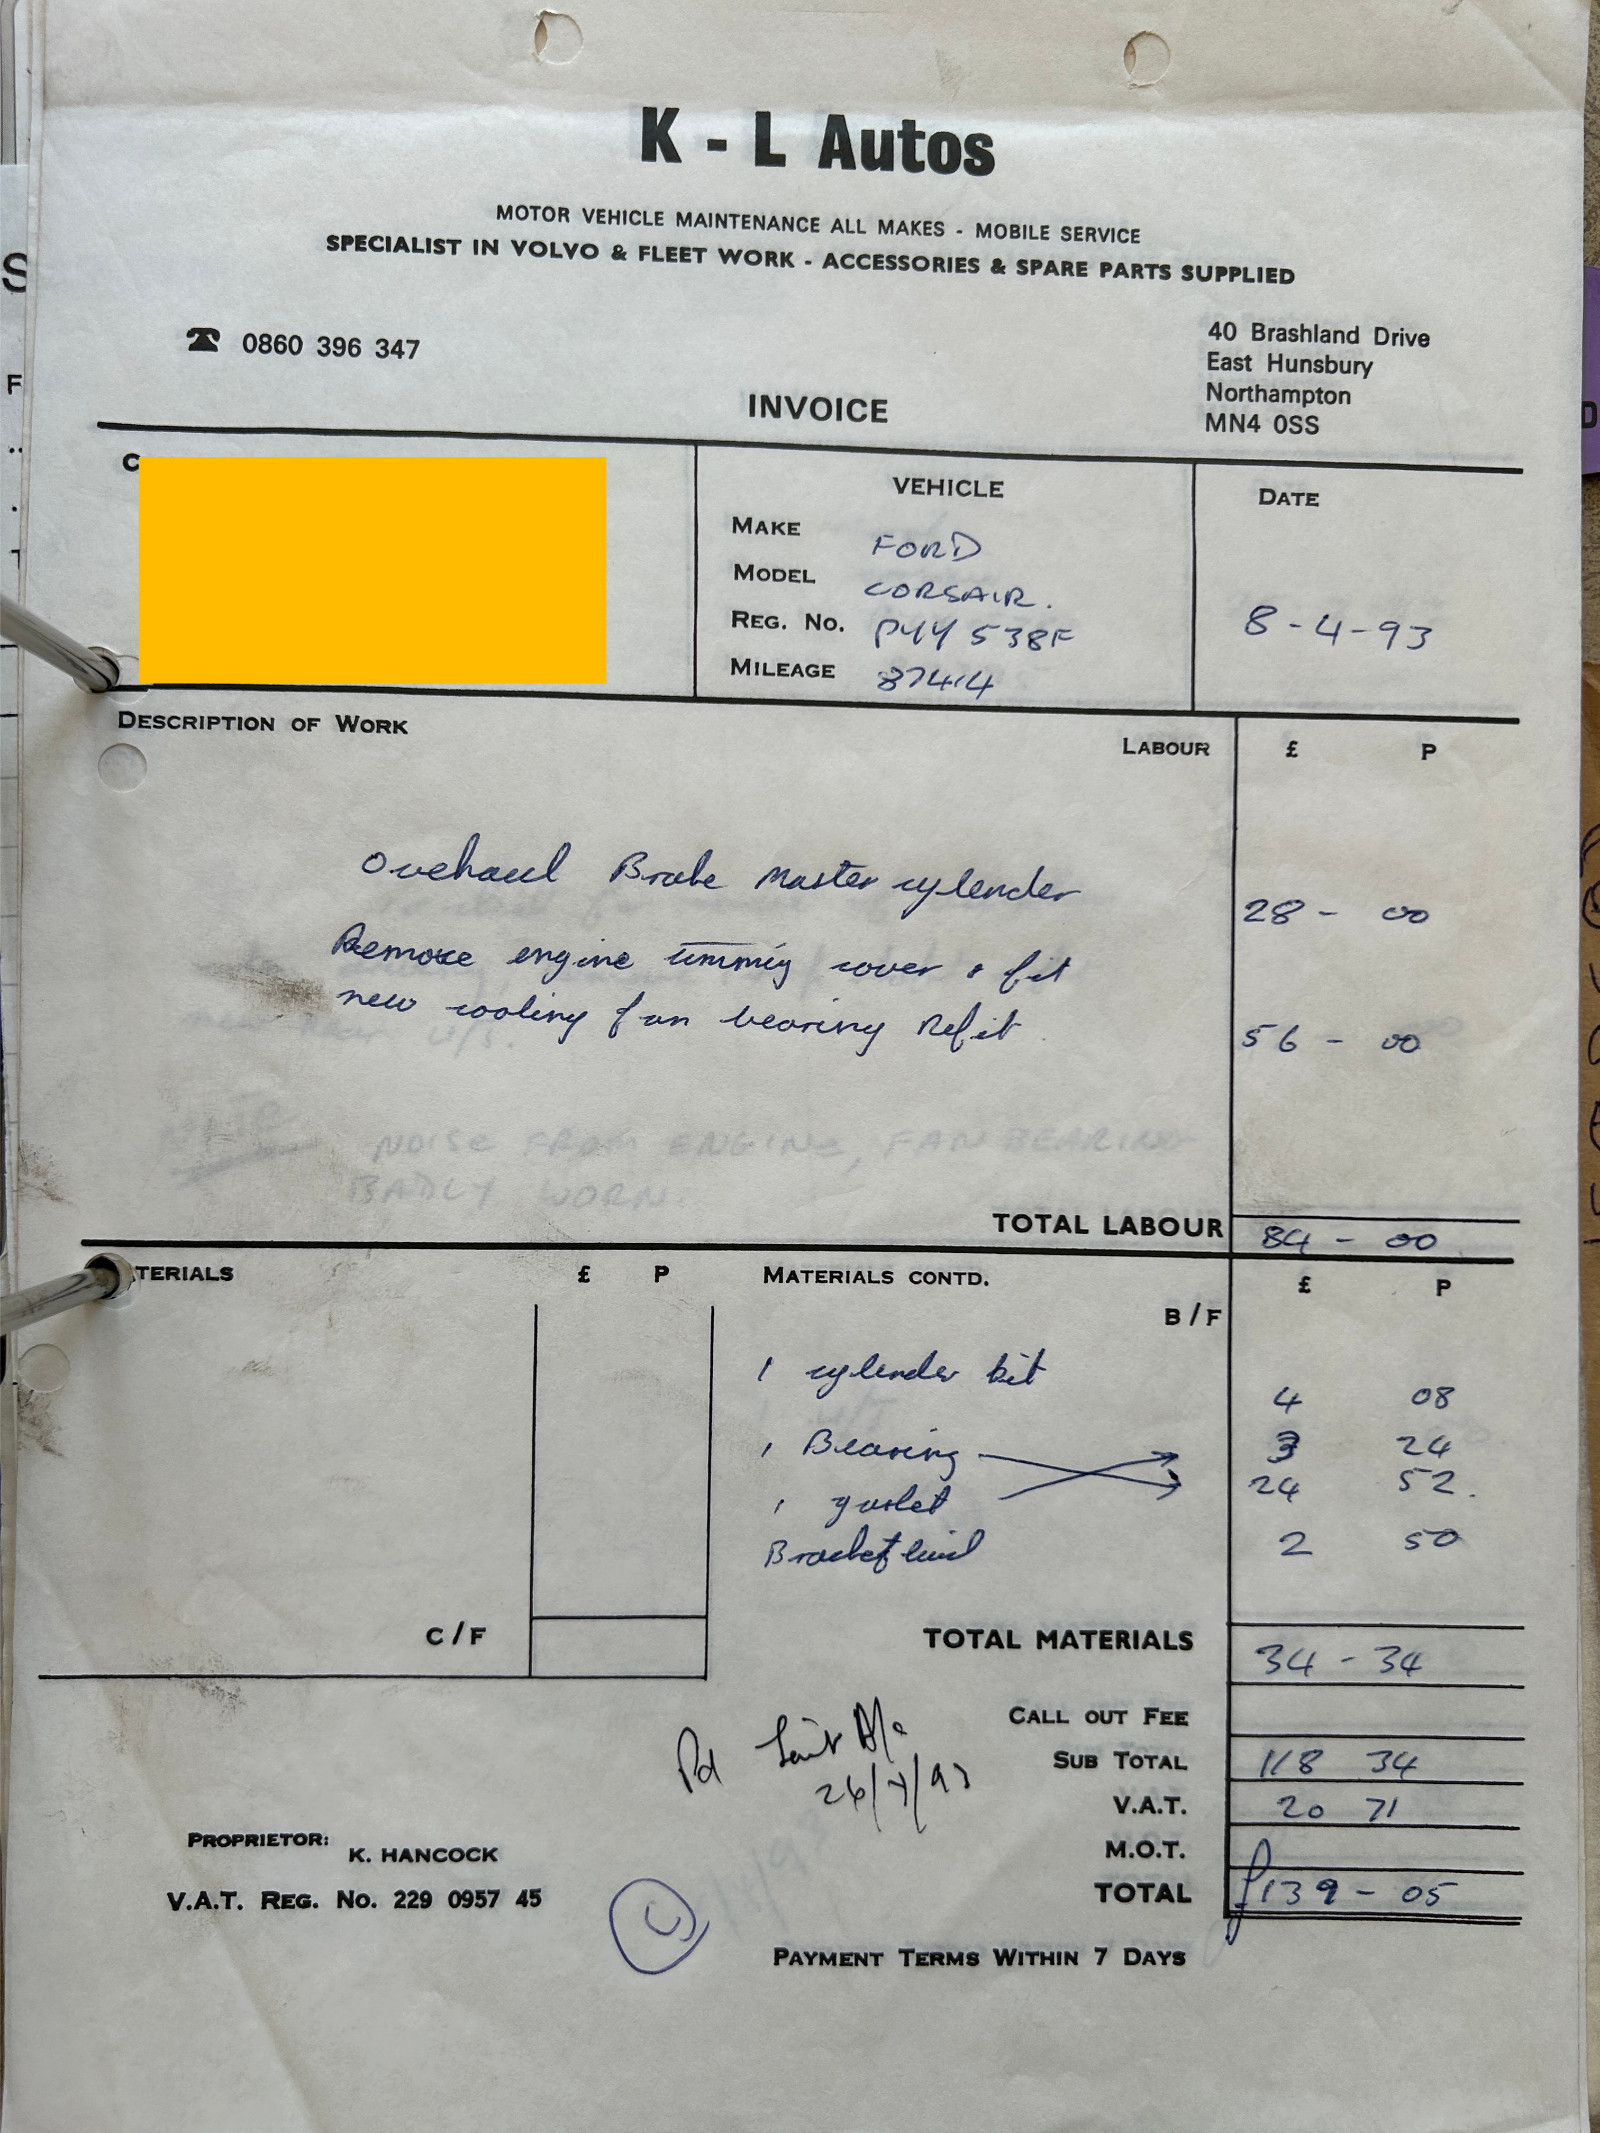 K - L Autos
MOTOR VEHICLE MAINTENANCE ALL MAKES - MOBILE SERVICE
SPECIALIST IN VOLVO & FLEET WORK - ACCESSORIES & SPARE PARTS SUPPLIED
☎ 0860 396 347
40 Brashland Drive
East Hunsbury
Northampton
MN4 0SS
INVOICE
C
VEHICLE
MAKE FORD
MODEL CORSAIR.
REG. NO. PYY 538F
MILEAGE 87414
DATE
8-4-93
DESCRIPTION OF WORK
LABOUR £ P
Ovehaul Brake Master cylender 28 - 00
Remove engine timmig cover & fit
new cooling fan bearing Refit 56 - 00
NOTE NOISE FROM ENGINE, FAN BEARING
BADLY WORN.
TOTAL LABOUR 84 - 00
TERIALS £ P
MATERIALS CONTD. £ P
B/F
1 cylender kit 4 08
1 Bearing 3 24
1 gasket 24 52.
Bracket 2 50
C/F
TOTAL MATERIALS 34 - 34
CALL OUT FEE
SUB TOTAL 118 34
V.A.T. 20 71
M.O.T.
TOTAL £139 - 05
Pd A/c
26/4/93
PROPRIETOR: K. HANCOCK
V.A.T. REG. NO. 229 0957 45
PAYMENT TERMS WITHIN 7 DAYS